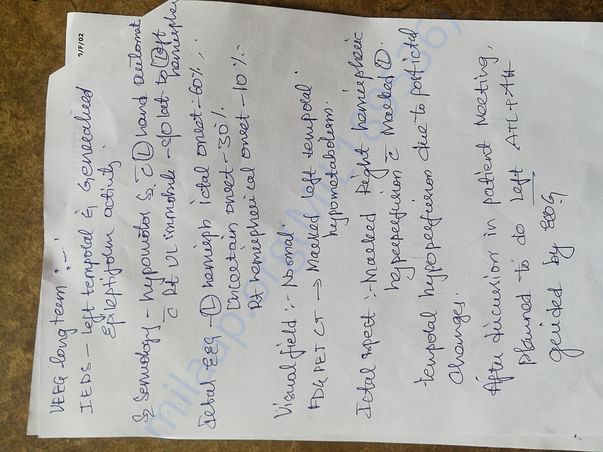 7/F/02
VEEG long term :-
IEDS - left temporal & Generalized
Epileptiform activity
Sz Semiology - hypomotor Sz c̄ Ⓛ hand automat
c̄ Rt UL immobile - s/o lat to left
hemisphe
Ictal EEG - Ⓛ hemisph ictal onset - 60%.
Uncertain onset - 30%.
Rt hemispherical onset - 10%.
Visual field :- Normal.
FDG PET CT → Marked left temporal
hypometabolism.
Ictal spect :- Marked Right hemispheric
hyperperfusion c̄ Marked Ⓛ
temporal hypoperfusion due to post ictal
changes.
After discussion in patient Meeting,
planned to do Left ATL+AH
guided by ECoG
milaap.org